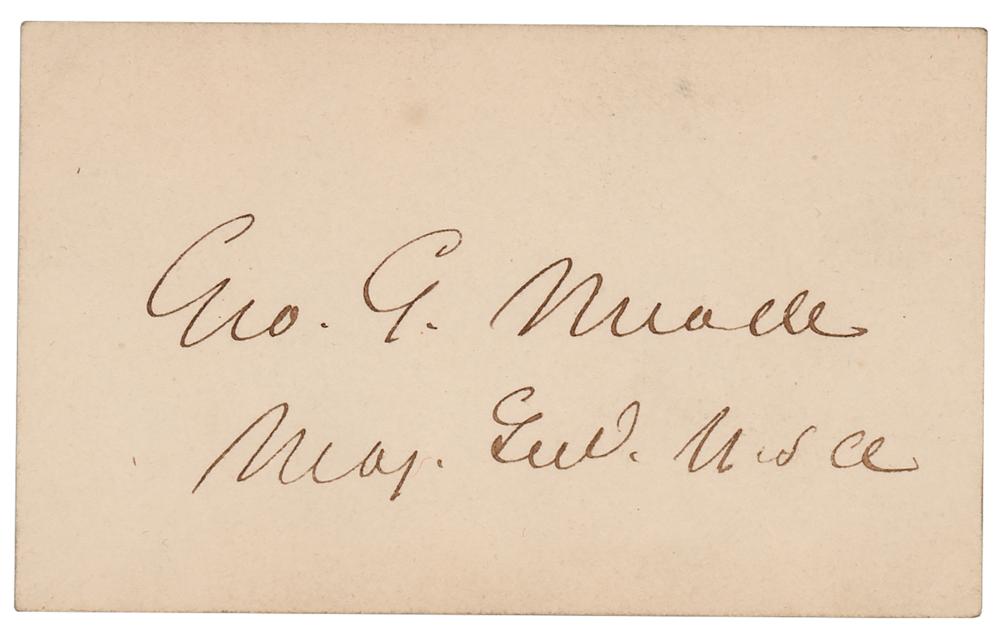 Geo. G. Meade
Maj. Genl. U.S.A